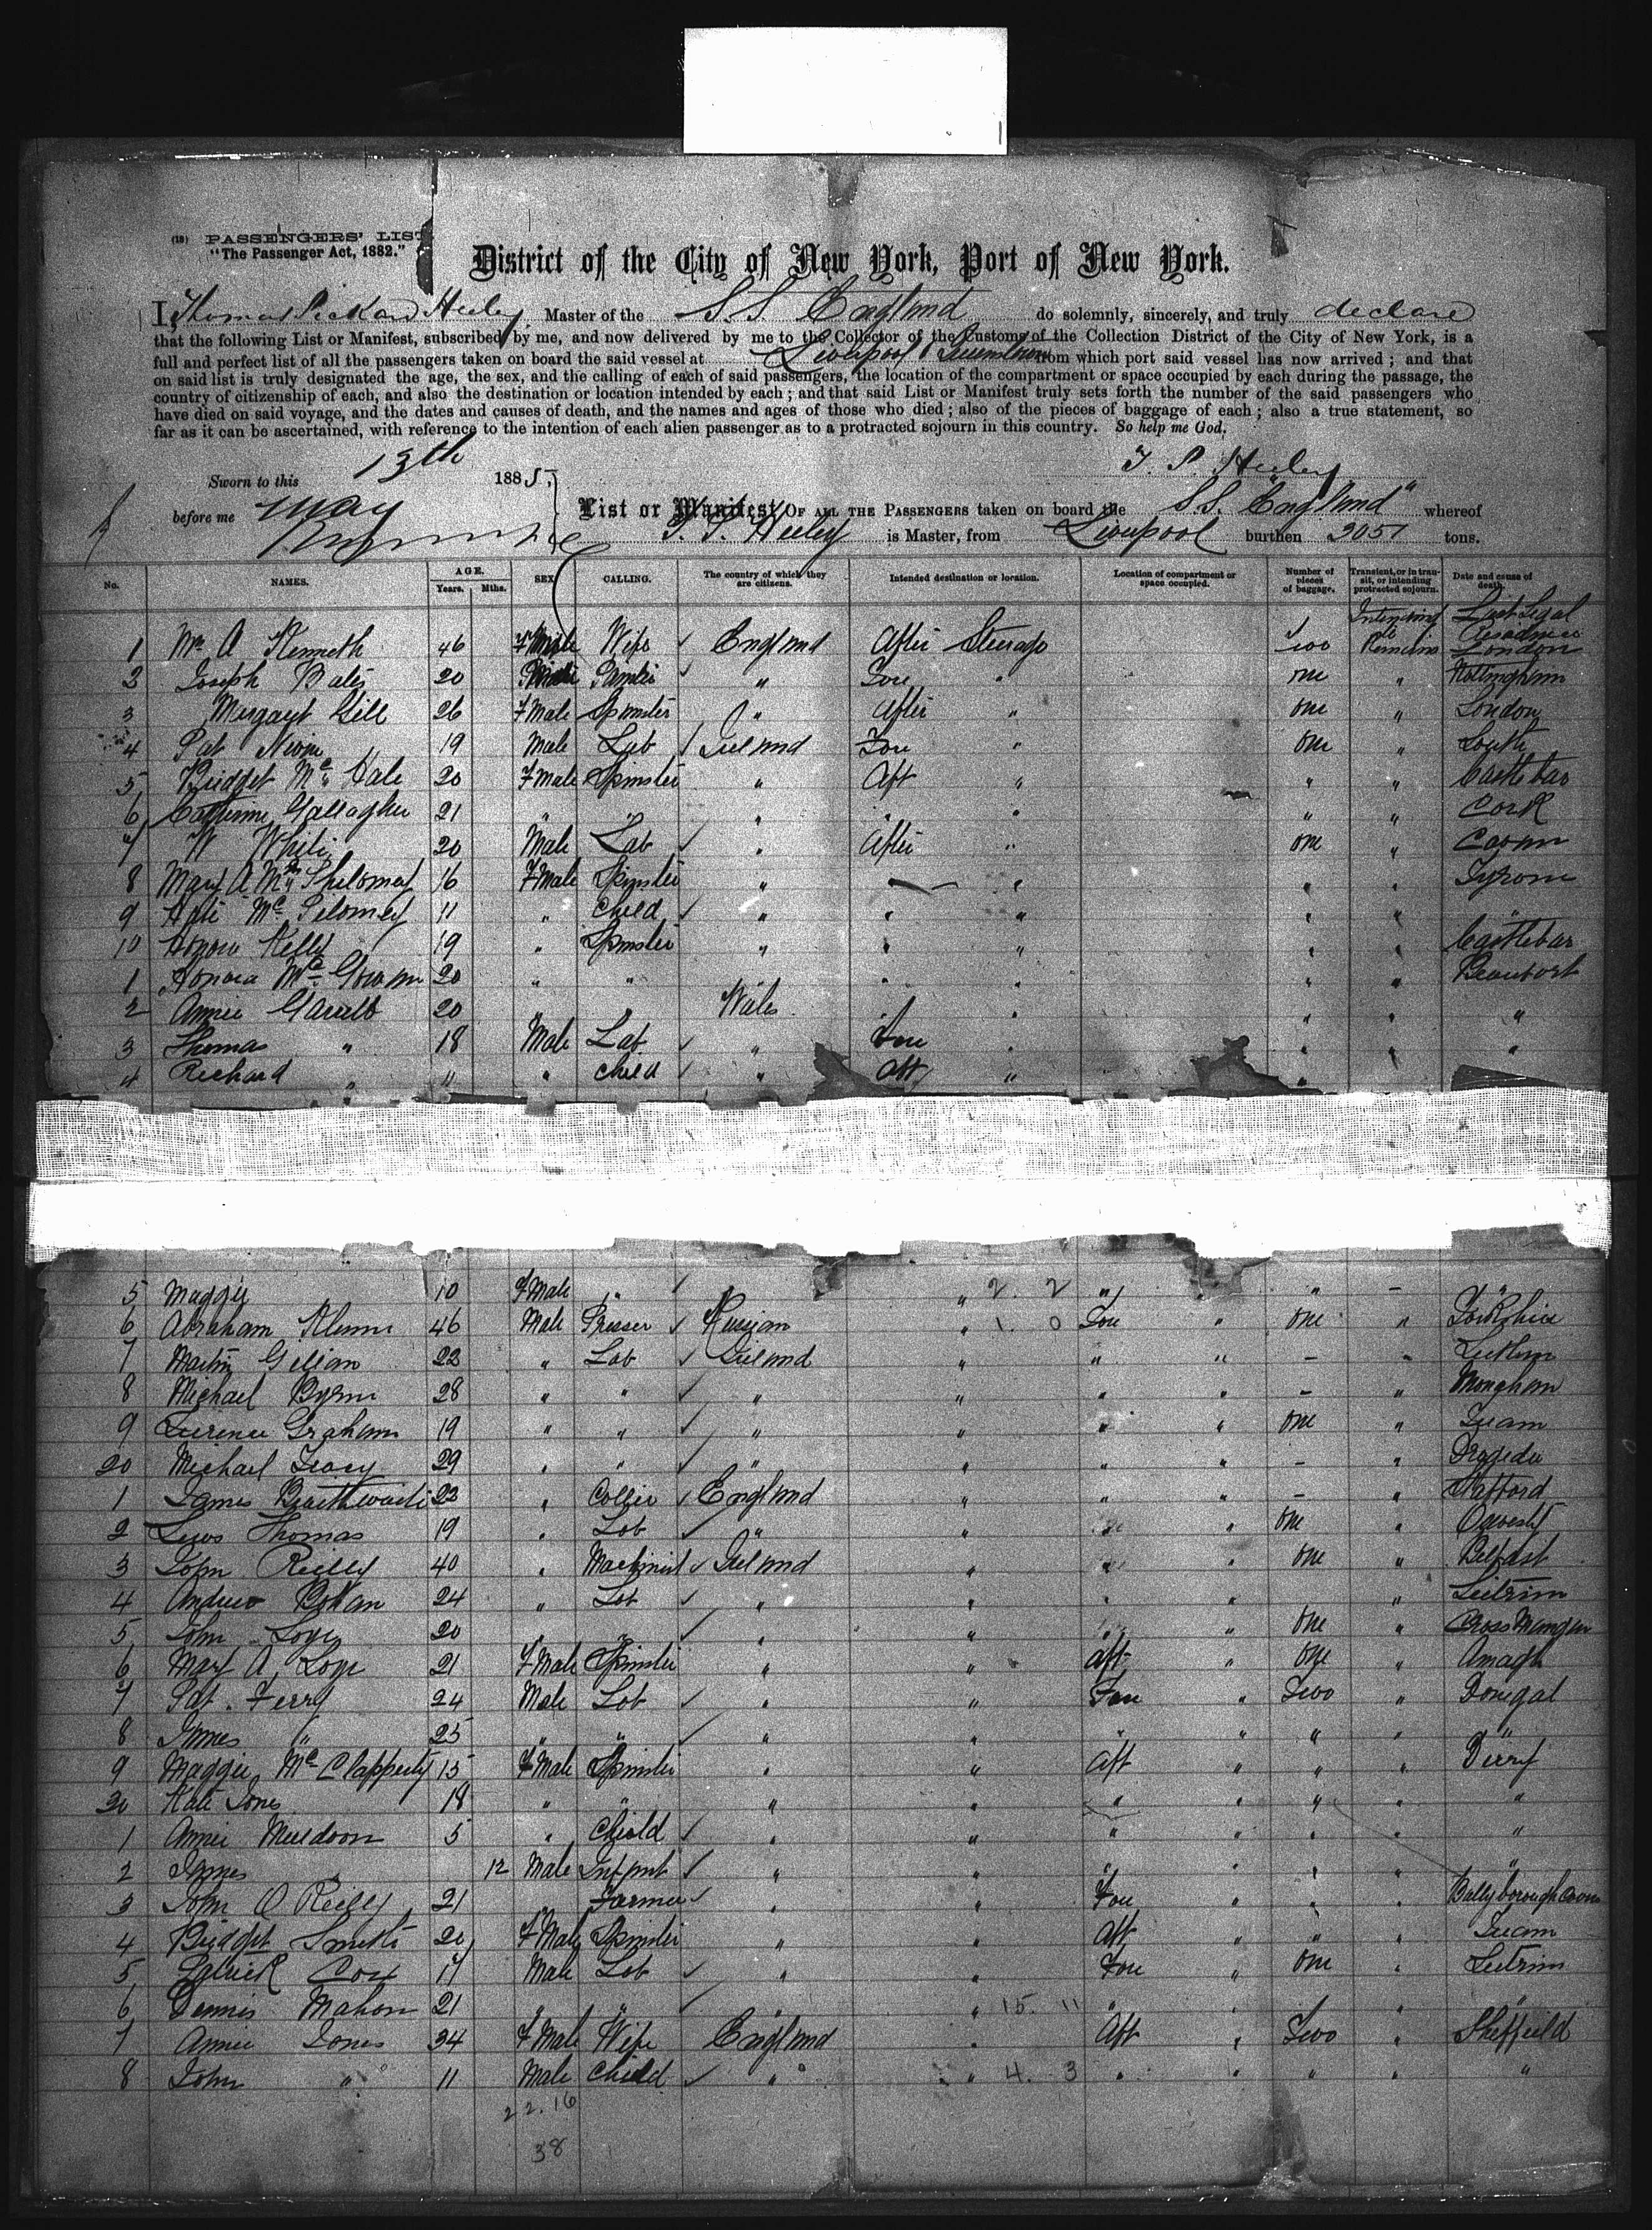 (18) PASSENGERS' LIST
"The Passenger Act, 1882."
District of the City of New York, Port of New York.
I, Thomas Pickard Heeley Master of the S.S. England do solemnly, sincerely, and truly declare
that the following List or Manifest, subscribed by me, and now delivered by me to the Collector of the Customs of the Collection District of the City of New York, is a
full and perfect list of all the passengers taken on board the said vessel at Liverpool & Queenstown from which port said vessel has now arrived; and that
on said list is truly designated the age, the sex, and the calling of each of said passengers, the location of the compartment or space occupied by each during the passage, the
country of citizenship of each, and also the destination or location intended by each; and that said List or Manifest truly sets forth the number of the said passengers who
have died on said voyage, and the dates and causes of death, and the names and ages of those who died; also of the pieces of baggage of each; also a true statement, so
far as it can be ascertained, with reference to the intention of each alien passenger as to a protracted sojourn in this country. So help me God.
Sworn to this 13th 1885, T. P. Heeley
before me May
List or Manifest OF ALL THE PASSENGERS taken on board the S.S. "England" whereof
T. P. Heeley is Master, from Liverpool burthen 3051 tons.
No. NAMES. AGE. Years. Mths. SEX. CALLING. The country of which they are citizens. Intended destination or location. Location of compartment or space occupied. Number of pieces of baggage. Transient, or in transit, or intending protracted sojourn. Date and cause of death.
Intending to Remain Last Legal Residence
1 Mrs A Kenneth 46 FMale Wife England After Steerage Two London
2 Joseph Bates 20 " Fore " one " Nottingham
3 Margaret Gill 26 FMale Spinster " After " one " London
4 Pat Niven 19 Male Lab Ireland Fore " one " Louth
5 Bridget McHale 20 FMale Spinster " Aft " " " Castlebar
6 Catherine Gallagher 21 " " " " " " " Cork
7 W White 20 Male Lab " After " one " Cavan
8 Mary A Mc 16 FMale Spinster " " " " Tyrone
9 Kate Mc 11 " Child " " " " " "
10 Honora Kelly 19 " Spinster " " " " " Castlebar
1 Honora McGowan 20 " " " " " " " Beaufort
2 Annie 20 " " Wales " " " " "
3 Thomas " 18 Male Lab " Fore " " " "
4 Richard " 11 " Child " Aft " "
5 Maggie 10 FMale " " 2. 2 " " - "
6 Abraham 46 Male Presser Russian " 1. 0 Fore " one " Yorkshire
7 Martin 22 " Lab Ireland " " " - " Leitrim
8 Michael Byrne 28 " " " " " - " Monaghan
9 Graham 19 " " " " " " one " Tuam
20 Michael Tracy 29 " " " " " " - " Drogeda
1 James Braithwaite 22 " Collier England " " " - " Stafford
2 Lewis Thomas 19 " Lab " " " one " Oswestry
3 John Reilly 40 " Machinist Ireland " " " one " Belfast
4 Andrew Bohan 24 " Lab " " " " " Leitrim
5 John 20 " " " " " " one "
6 Mary A 21 FMale Spinster " " Aft " one " Amagh
7 Pat Ferry 24 Male Lab " " Fore " Two " Donegal
8 James " 25 " " " " " " " "
9 Maggie McClapperty 15 FMale Spinster " " Aft " " " Derry
30 Kate Jones 18 " " " " " " " " "
1 Annie Muldoon 5 " Child " " " " " " "
2 James 12 Male Infant " " " " " "
3 John O Reilly 21 Farmer " " Fore " " " Ballyborough Cavan
4 Bridget Smith 20 FMale Spinster " " Aft " " " Tuam
5 Patrick Cox 17 Male Lab " " Fore " one " Leitrim
6 Dennis Mahon 21 " " " " 15. 11 " " " "
7 Annie Jones 34 FMale Wife England " Aft " Two " Sheffield
8 John " 11 Male Child " " 4. 3 " " " " "
22.16
38